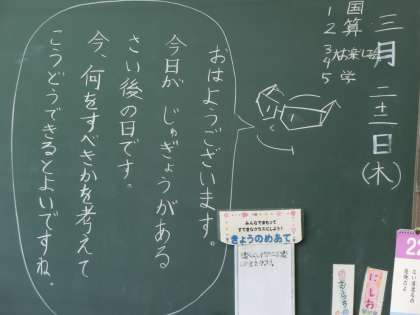 三月二十二日(木)
1 国
2 算
3
4 お楽しみ会
5 学
おはようございます。
今日が じゅぎょうがある
さい後の日です。
今、何をすべきかを考えて
こうどうできるとよいですね。
きょうのめあて
にしお
22